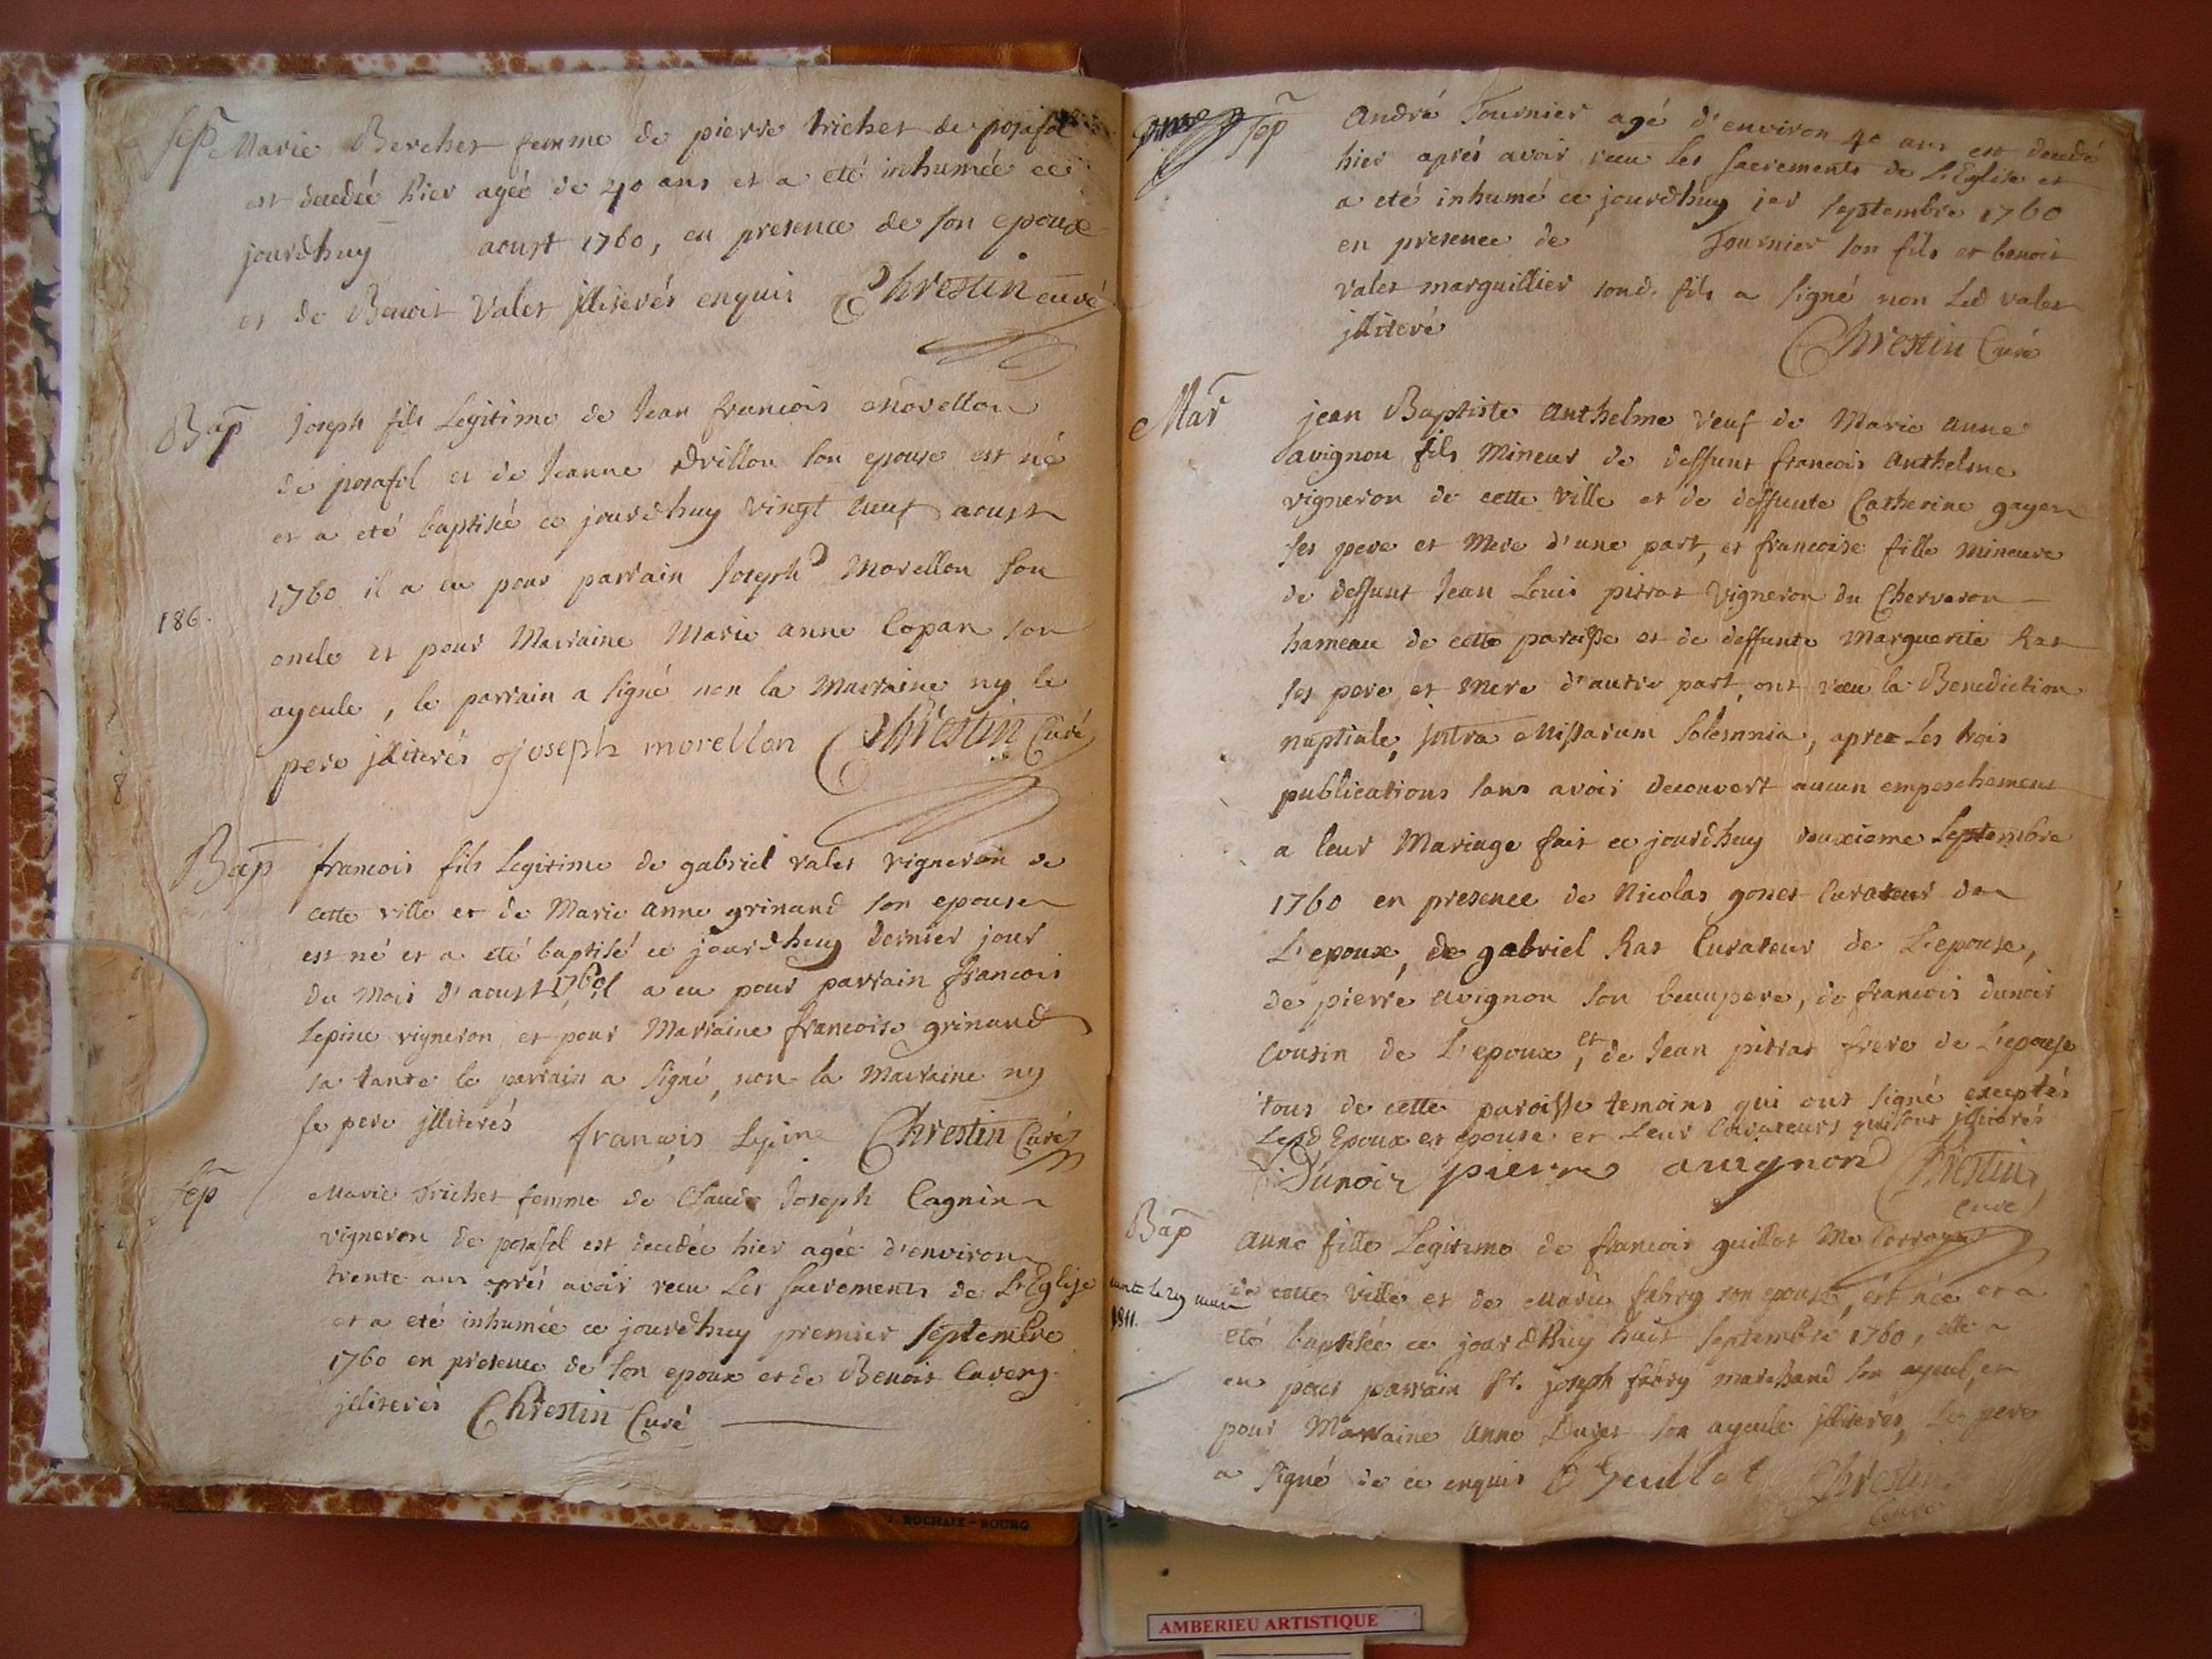 Sep Marie Bercher femme de pierre trichet de posafol
est decedée hier agée de 40 ans et a eté inhumée ce
jourdhuy aoust 1760, en presence de son epoux
et de Benoit Valet jlliterés enquis Chrestin curé
Bap Joseph fils Legitime de Jean francois Morellon
de posafol et de Jeanne drillon son epouse est né
et a eté baptisé ce jourdhuy vingt neuf aoust
1760 il a eu pour parrain Joseph Morellon son
186.
oncle et pour Marraine Marie anne Copan son
ayeule, le parrain a signé non la Marraine ny le
pere jlliterés joseph morellon Chrestin Curé
8
Bap francois fils Legitime de gabriel valet vigneron de
cette ville et de Marie anne grinand son epouse
est né et a eté baptisé ce jourdhuy dernier jour
du Mois d'aoust 1760, il a eu pour parrain francois
Lepine vigneron et pour Marraine francoise grinand
sa tante le parrain a signé, non la Marraine ny
le pere jlliterés francois Lepine Chrestin Curé
Sep Marie Trichet femme de Claude Joseph Cagnin
vigneron de posafol est decedée hier agée d'environ
trente ans aprés avoir recu Les sacrements de L'Eglise
et a eté inhumée ce jourdhuy premier septembre
1760 en presence de son epoux et de Benoit
jlliterés Chrestin Curé
J. ROCHAIX - BOURG
Sep André Tournier agé d'environ 40 ans est decedé
hier aprés avoir recu les sacrements de L'Eglise et
a eté inhumé ce jourdhuy 1er septembre 1760
en presence de Tournier son fils et benoit
valet marguillier sond. fils a signé non Led valet
jlliteré
Chrestin Curé
Mar jean Baptiste anthelme veuf de Marie anne
avignon fils Mineur de deffunt francois anthelme
vigneron de cette ville et de deffunte Catherine gayen
ses pere et Mere d'une part, et francoise fille mineure
de deffunt Jean Louis pitrat vigneron du Chervaron
hameau de cette paroisse et de deffunte Marguerite Rat
ses pere et Mere d'autre part, ont recu la Benediction
nuptiale, jntra Missarum solemnia, apres Les trois
publications sans avoir decouvert aucun empeschement
a leur Mariage fait ce jourdhuy deuxieme septembre
1760 en presence de Nicolas gonet Curateur de
L'epoux, de gabriel Rat Curateur de L'epouse,
de pierre avignon son beaupere, de francois dunoir
cousin de L'epoux, et de Jean pitrat frere de L'epouse
tous de cette paroisse temoins qui ont signé exceptés
Lesd Epoux et epouse et Leur Curateurs qui sont jlliterés
Dunoir pierre avignon Chrestin
curé
Bap anne fille Legitime de francois guillot Me
de cette ville et de Marie fabry son epouse, est née et a
1811.
eté baptisée ce jourdhuy huit septembre 1760, elle a
eu pour parrain Sr. joseph fabry marchand son ayeul, et
pour Marraine anne Duret son ayeule jlliterés, le pere
a signé de ce enquis Guillot Chrestin
Curé
AMBERIEU ARTISTIQUE